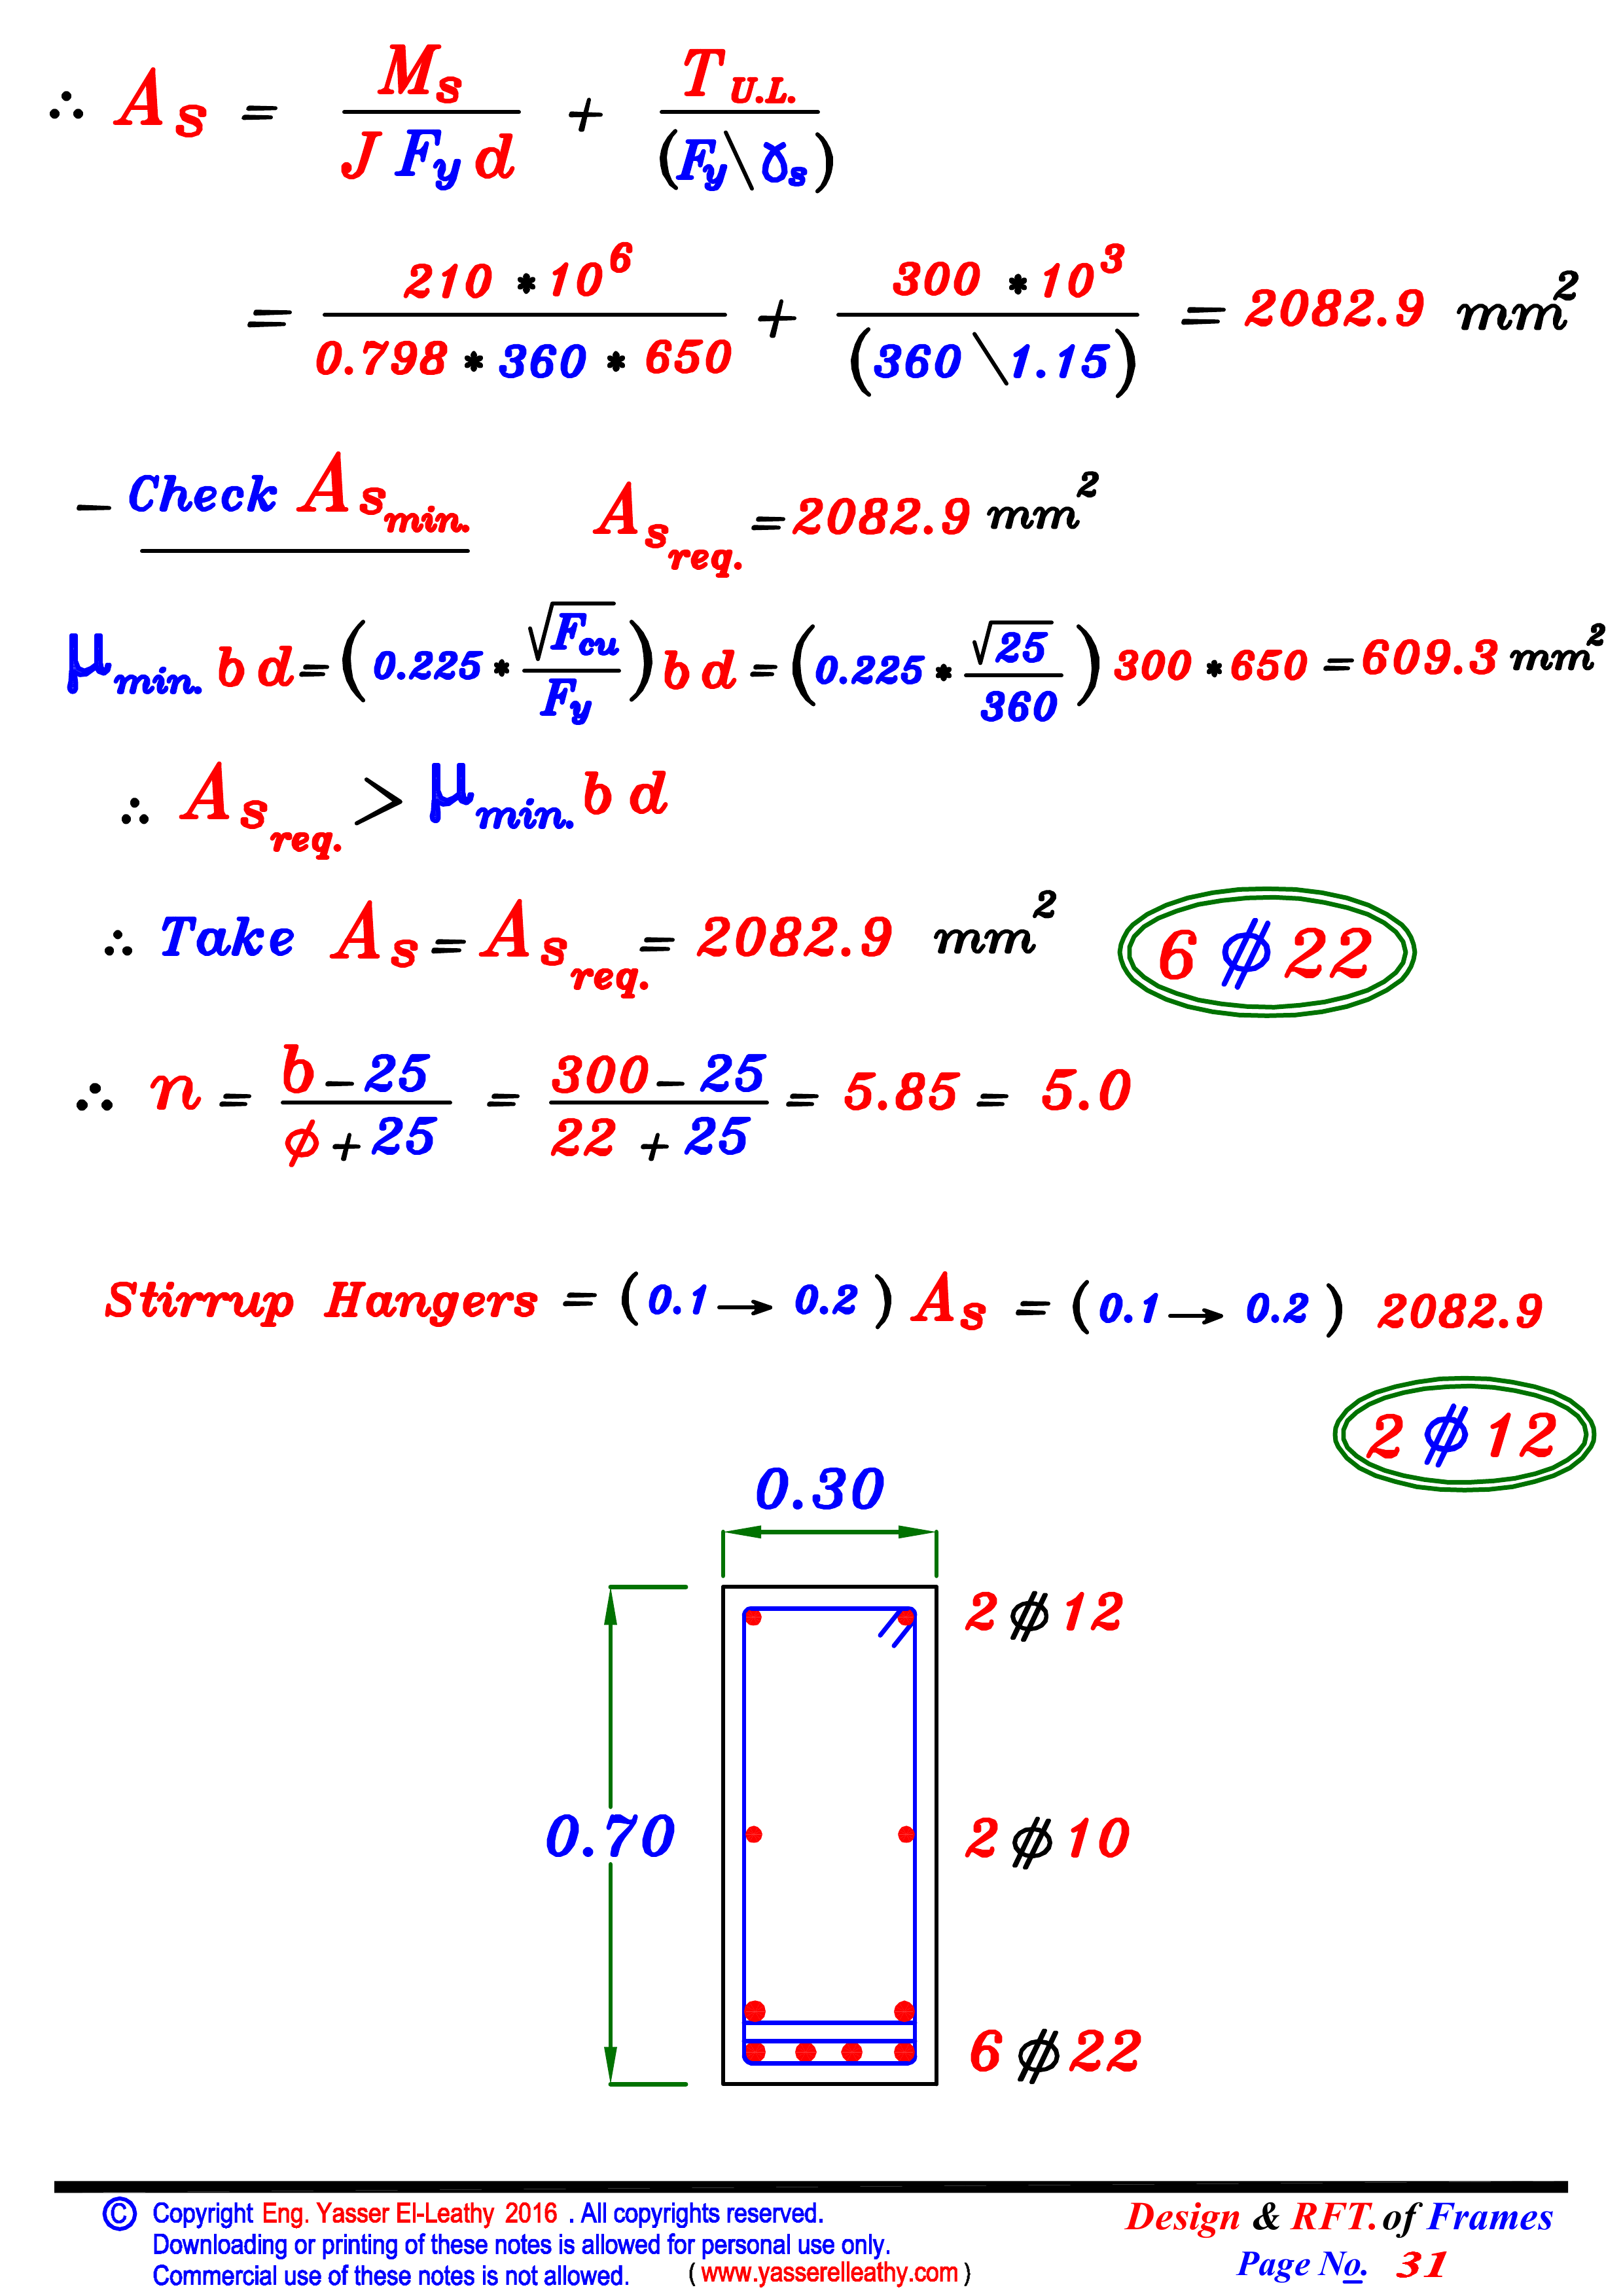 ∴ As = Ms / (J Fy d) + T U.L. / (Fy \ γs)
= 210 * 10^6 / (0.798 * 360 * 650) + 300 * 10^3 / (360 \ 1.15) = 2082.9 mm²
- Check As min. As req. = 2082.9 mm²
μ min. b d = (0.225 * √Fcu / Fy) b d = (0.225 * √25 / 360) 300 * 650 = 609.3 mm²
∴ As req. > μ min. b d
∴ Take As = As req. = 2082.9 mm² 6 ϕ 22
∴ n = (b - 25) / (ϕ + 25) = (300 - 25) / (22 + 25) = 5.85 = 5.0
Stirrup Hangers = (0.1 → 0.2) As = (0.1 → 0.2) 2082.9
2 ϕ 12
0.30
2 ϕ 12
0.70
2 ϕ 10
6 ϕ 22
© Copyright Eng. Yasser El-Leathy 2016 . All copyrights reserved.
Downloading or printing of these notes is allowed for personal use only.
Commercial use of these notes is not allowed. ( www.yasserelleathy.com )
Design & RFT. of Frames
Page No. 31